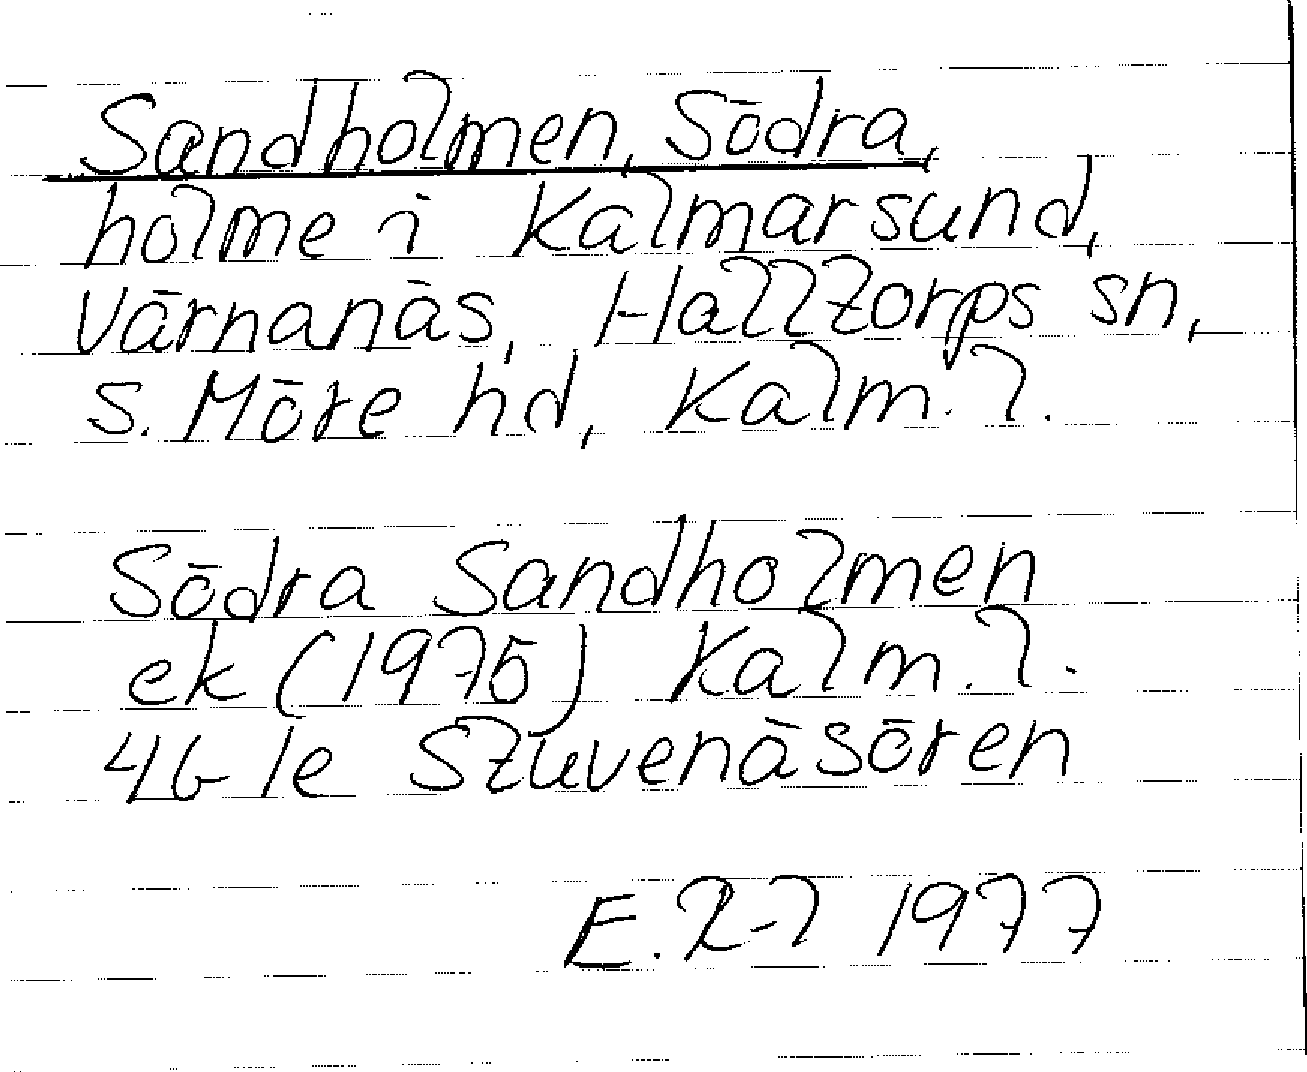 Sandholmen, Södra,
holme i Kalmarsund,
Värnanäs, Halltorps sn,
S. Möre hd, Kalm. l.
Södra Sandholmen
ek (1975) Kalm. l.
4G 1e Stuvenäsören
E. R-l 1977